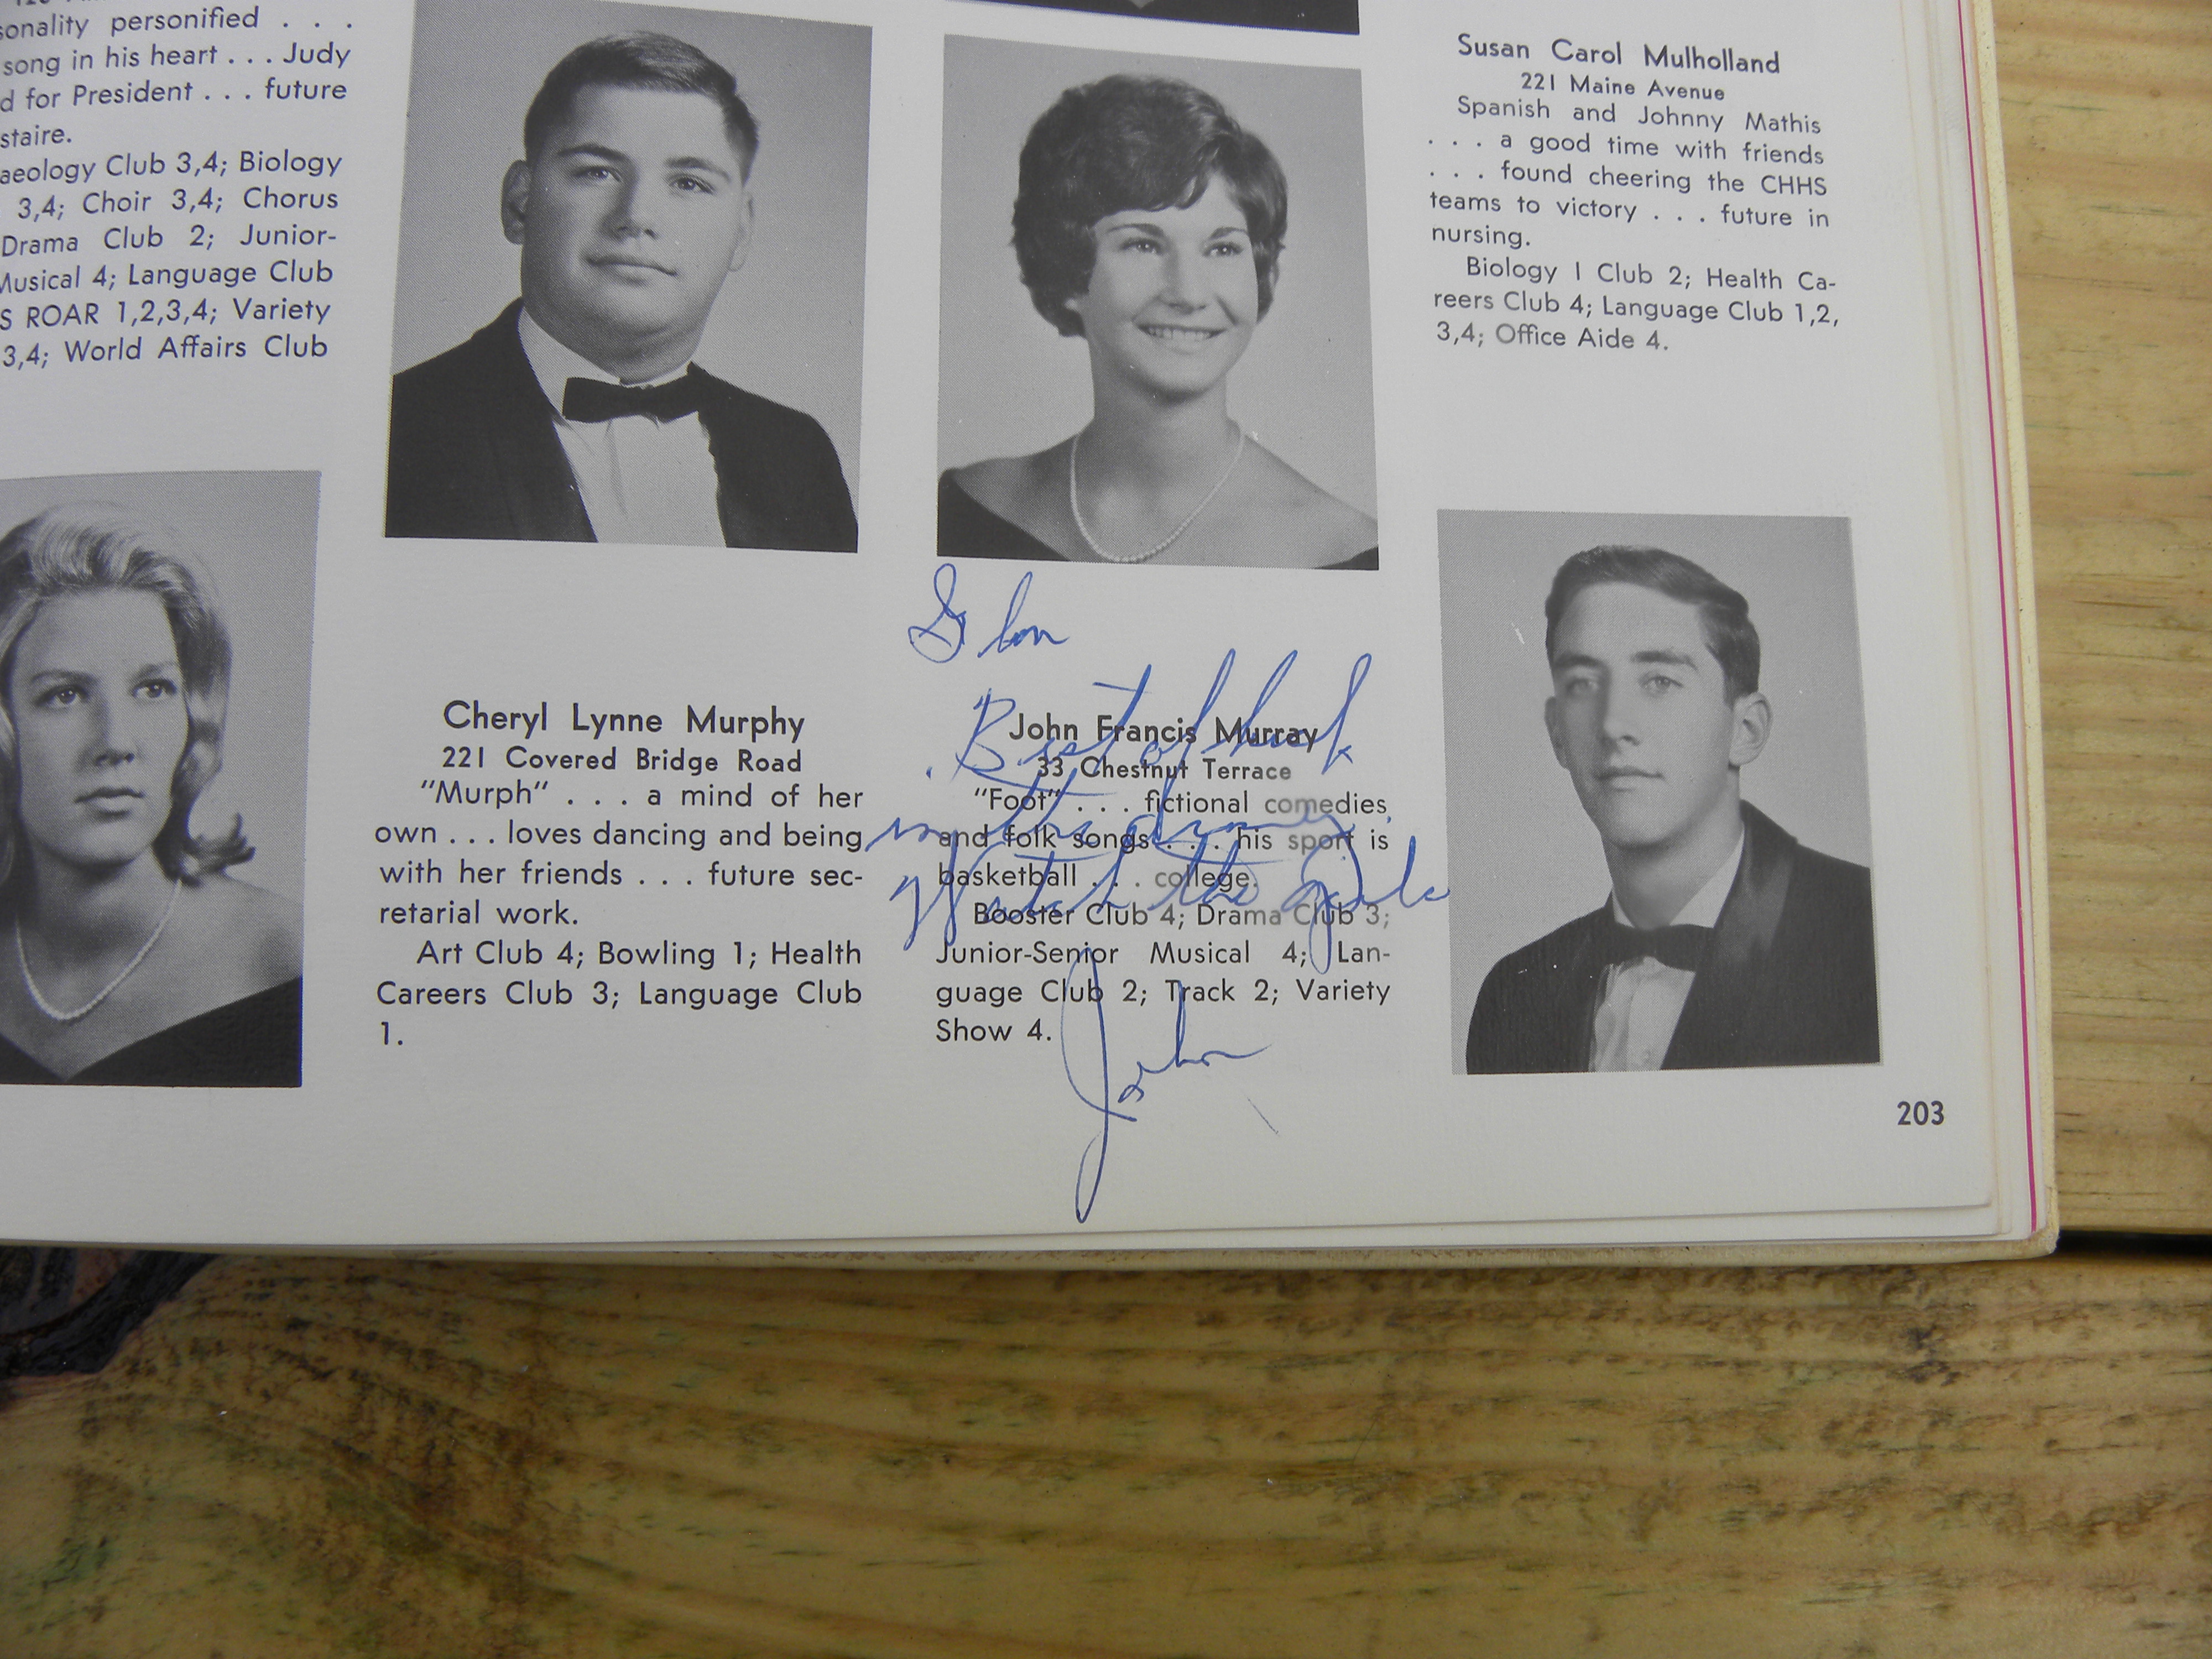 sonality personified . . .
song in his heart . . . Judy
d for President . . . future
staire.
aeology Club 3,4; Biology
3,4; Choir 3,4; Chorus
Drama Club 2; Junior-
Musical 4; Language Club
S ROAR 1,2,3,4; Variety
3,4; World Affairs Club
Cheryl Lynne Murphy
221 Covered Bridge Road
"Murph" . . . a mind of her
own . . . loves dancing and being
with her friends . . . future sec-
retarial work.
Art Club 4; Bowling 1; Health
Careers Club 3; Language Club
1.
John Francis Murray
33 Chestnut Terrace
"Foot" . . . fictional comedies
and folk songs . . . his sport is
basketball . . . college.
Booster Club 4; Drama Club 3;
Junior-Senior Musical 4; Lan-
guage Club 2; Track 2; Variety
Show 4.
Best of luck
in the
Watch the
John
Susan Carol Mulholland
221 Maine Avenue
Spanish and Johnny Mathis
. . . a good time with friends
. . . found cheering the CHHS
teams to victory . . . future in
nursing.
Biology I Club 2; Health Ca-
reers Club 4; Language Club 1,2,
3,4; Office Aide 4.
203